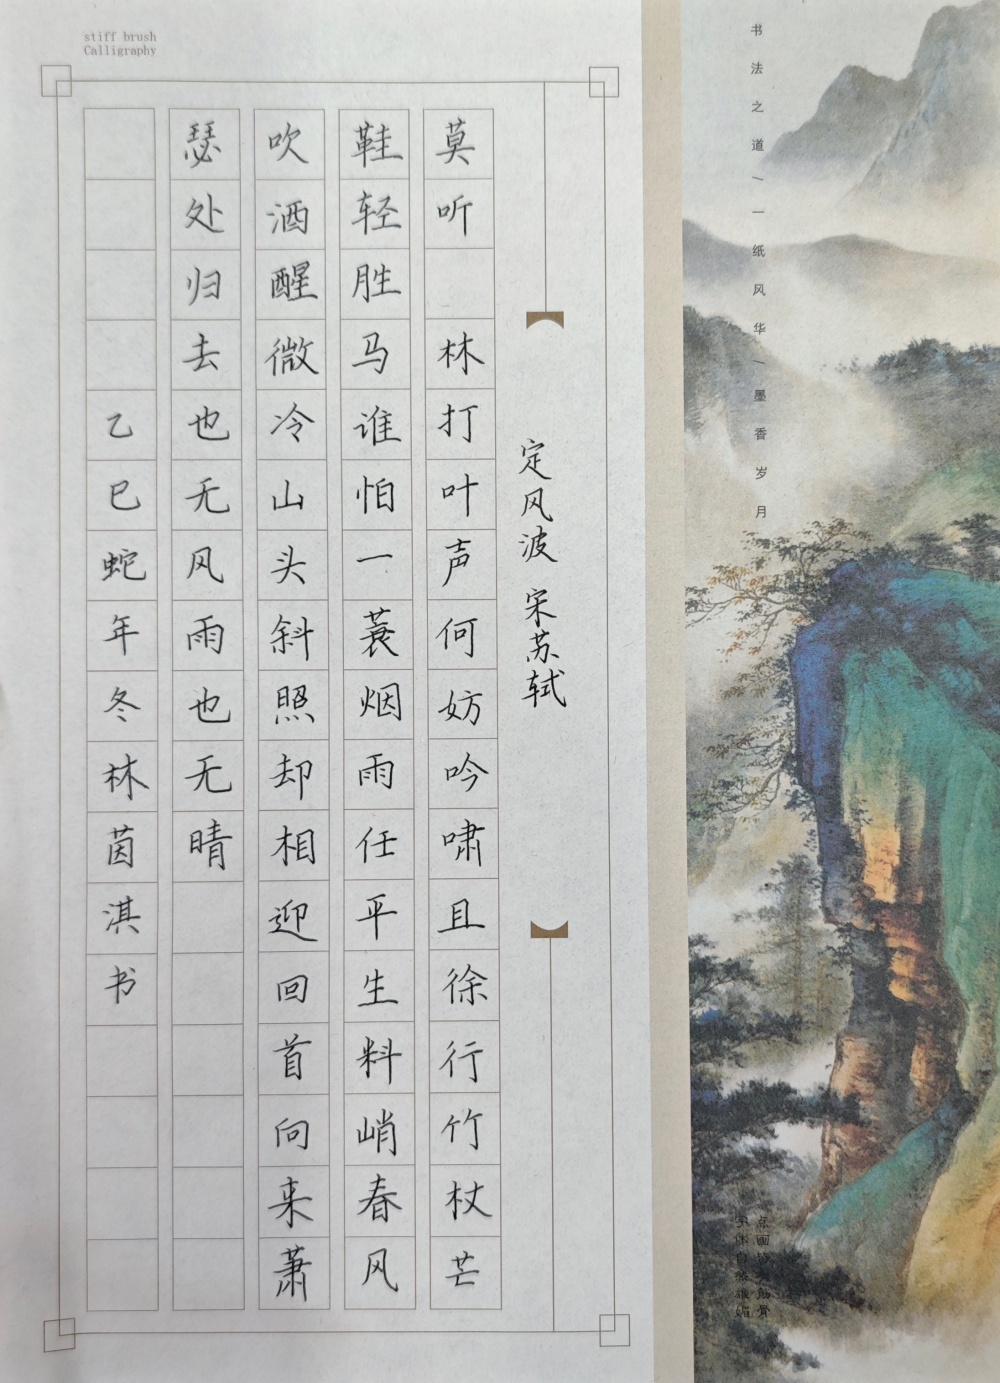 stiff brush
Calligraphy
定风波 宋苏轼
莫听 林打叶声何妨吟啸且徐行竹杖芒
鞋轻胜马谁怕一蓑烟雨任平生料峭春风
吹酒醒微冷山头斜照却相迎回首向来萧
瑟处归去也无风雨也无晴
乙巳蛇年冬林茵淇书
书法之道/一纸风华/墨香岁月